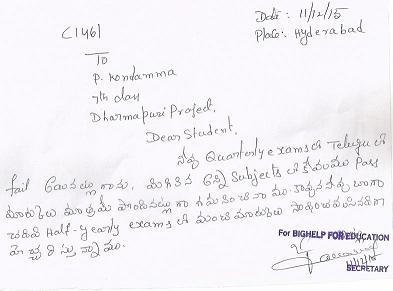 C1461
Date : 11/12/15
Place: Hyderabad
To
P. Kondamma
7th class
Dharmapuri Project,
Dear Student,
నీవు Quarterly exams లో Telugu లో
fail కాగా, మిగిలిన అన్ని Subjects లో కేవలము Pass
మార్కులు మాత్రమే పొందినట్లు గా గమనించినాము. కావున నీవు బాగా
చదివి Half-yearly exams లో మంచి మార్కులు సాధించవలసినదిగా
హెచ్చరిస్తున్నాము.
For BIGHELP FOR EDUCATION
11/12/15
SECRETARY